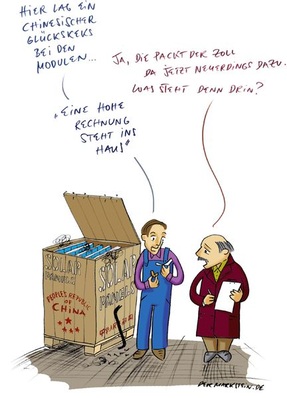 HIER LAG EIN
CHINESISCHER
GLÜCKSKEKS
BEI DEN
MODULEN...
JA, DIE PACKT DER ZOLL
DA JETZT NEUERDINGS DAZU.
WAS STEHT DENN DRIN?
„EINE HOHE
RECHNUNG
STEHT INS
HAUS“
SOLAR
PEOPLE'S REPUBLIC
OF
CHINA
SOLAR